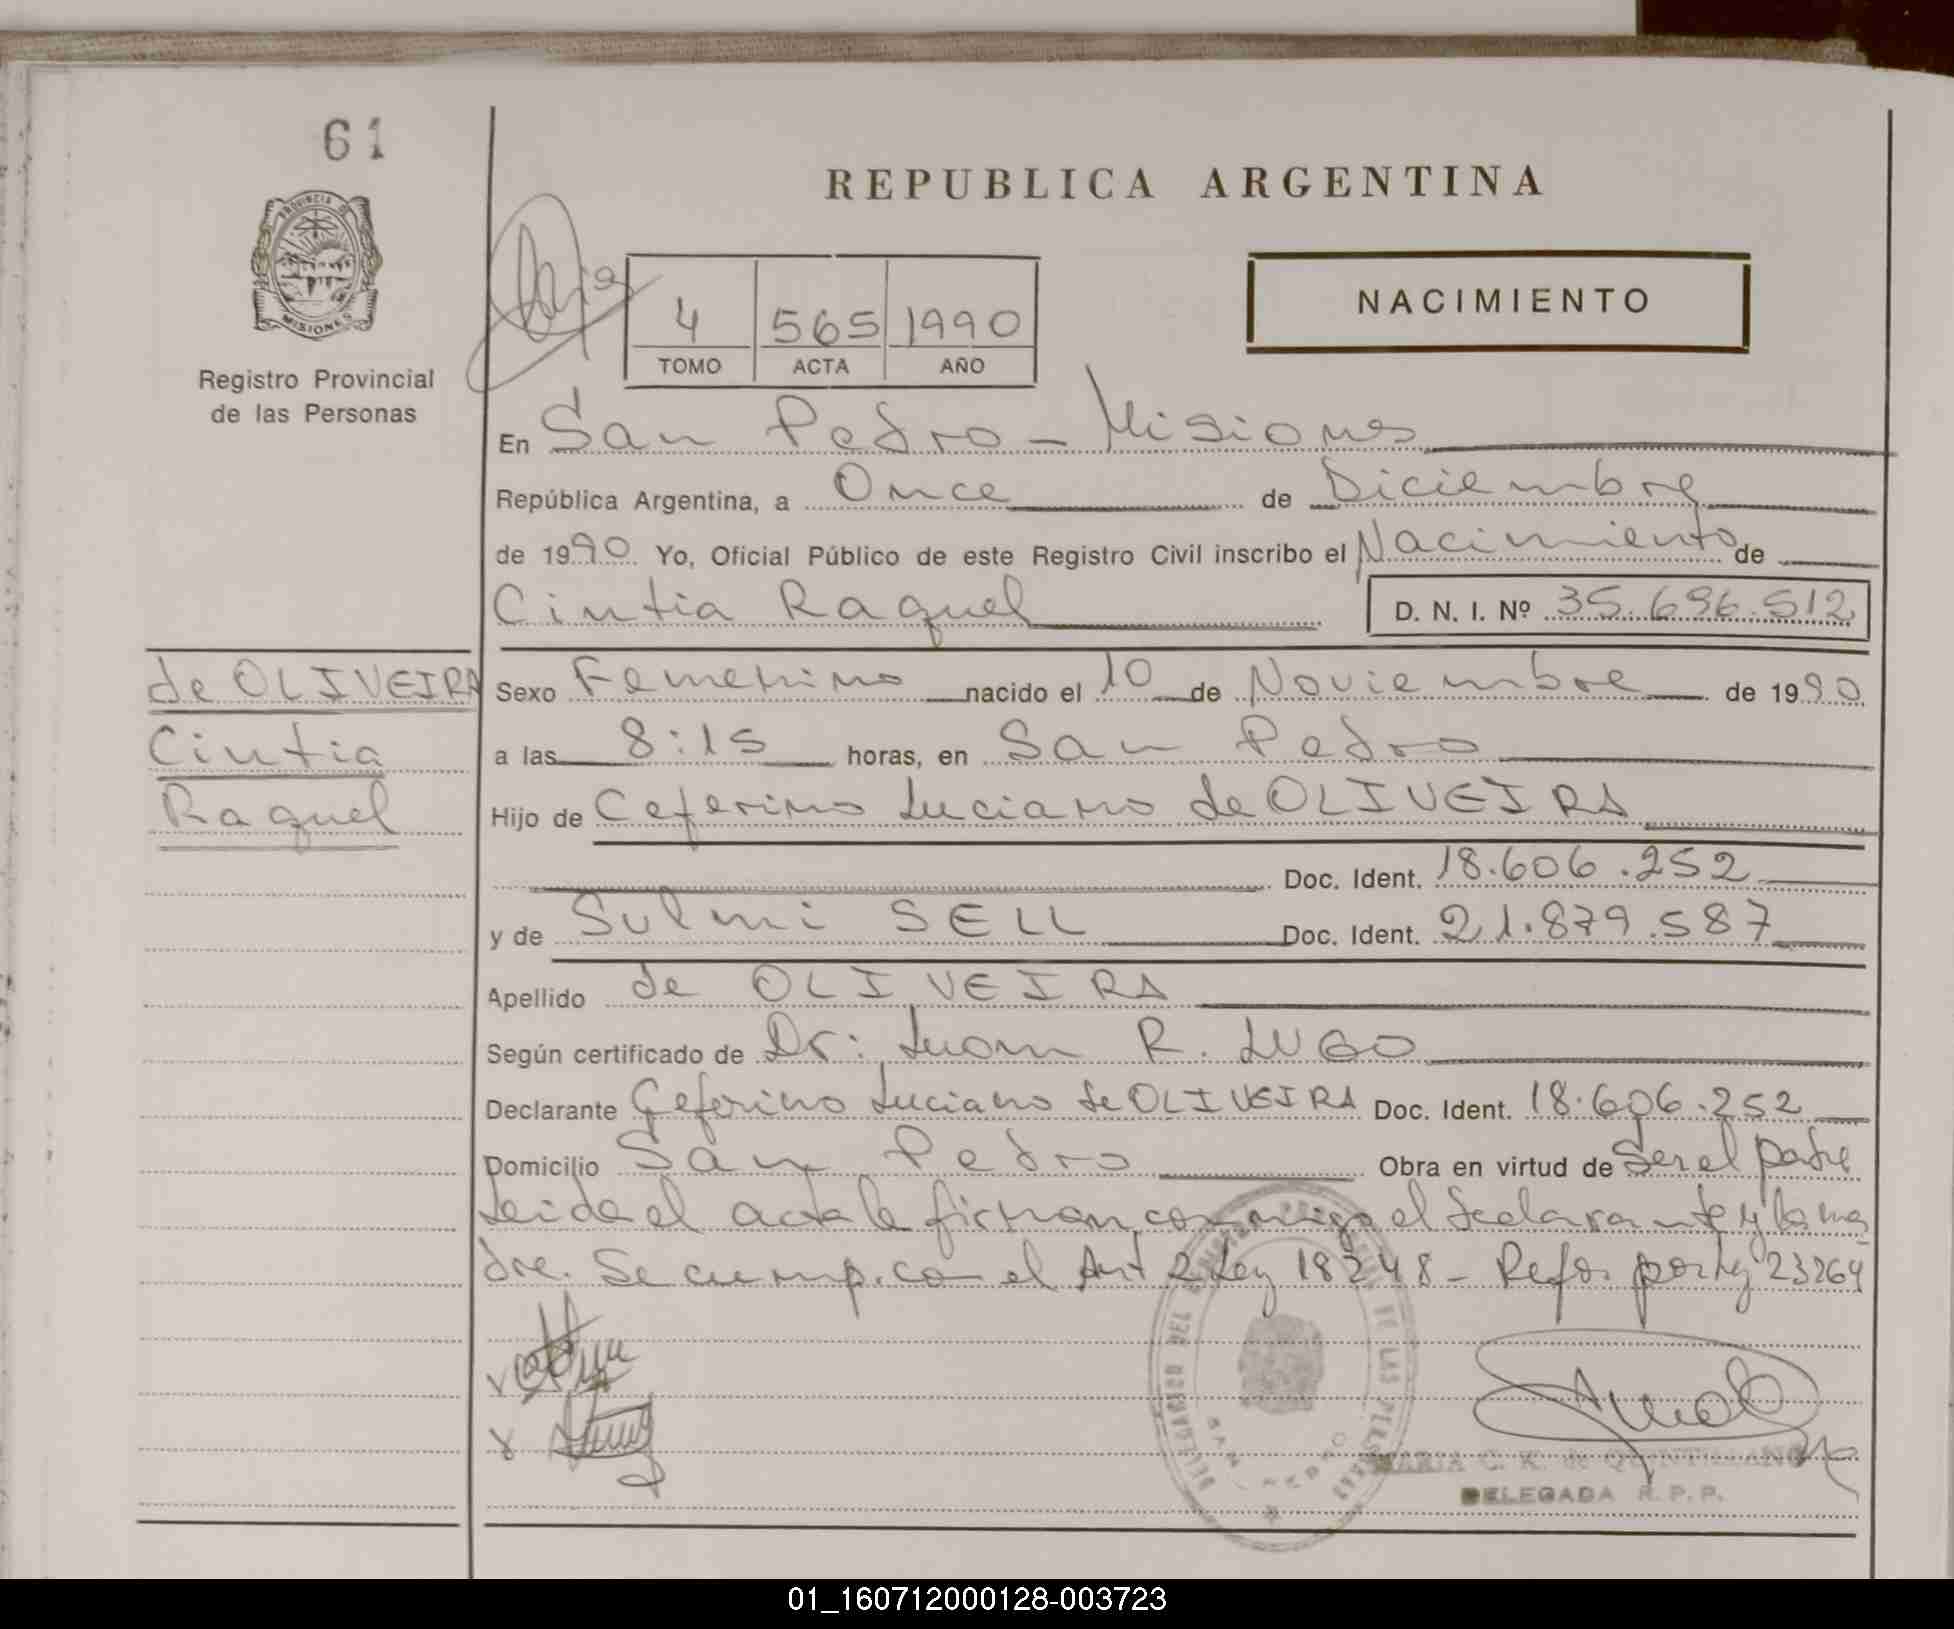 61
REPUBLICA ARGENTINA
PROVINCIA DE
MISIONES
Registro Provincial
de las Personas
4 565 1990
TOMO ACTA AÑO
NACIMIENTO
En San Pedro - Misiones
República Argentina, a Once de Diciembre
de 1990 Yo, Oficial Público de este Registro Civil inscribo el Nacimiento de
Cintia Raquel D. N. I. Nº 35.696.512
de OLIVEIRA
Cintia
Raquel
Sexo Femenino nacido el 10 de Noviembre de 1990
a las 8:15 horas, en San Pedro
Hijo de Ceferino Luciano de OLIVEIRA
Doc. Ident. 18.606.252
y de Sulmi SELL Doc. Ident. 21.879.587
Apellido de OLIVEIRA
Según certificado de Dr: Juan R. LUGO
Declarante Ceferino Luciano de OLIVEIRA Doc. Ident. 18.606.252
Domicilio San Pedro Obra en virtud de Ser el padre
Leida el acta la firman conmigo el declarante y la ma
dre. Se cump. con el Art 2 Ley 18248 - Refor por Ley 23264
MARIA C. K. de QUINTILLANO
DELEGADA R. P. P.
SAN PEDRO
01_160712000128-003723